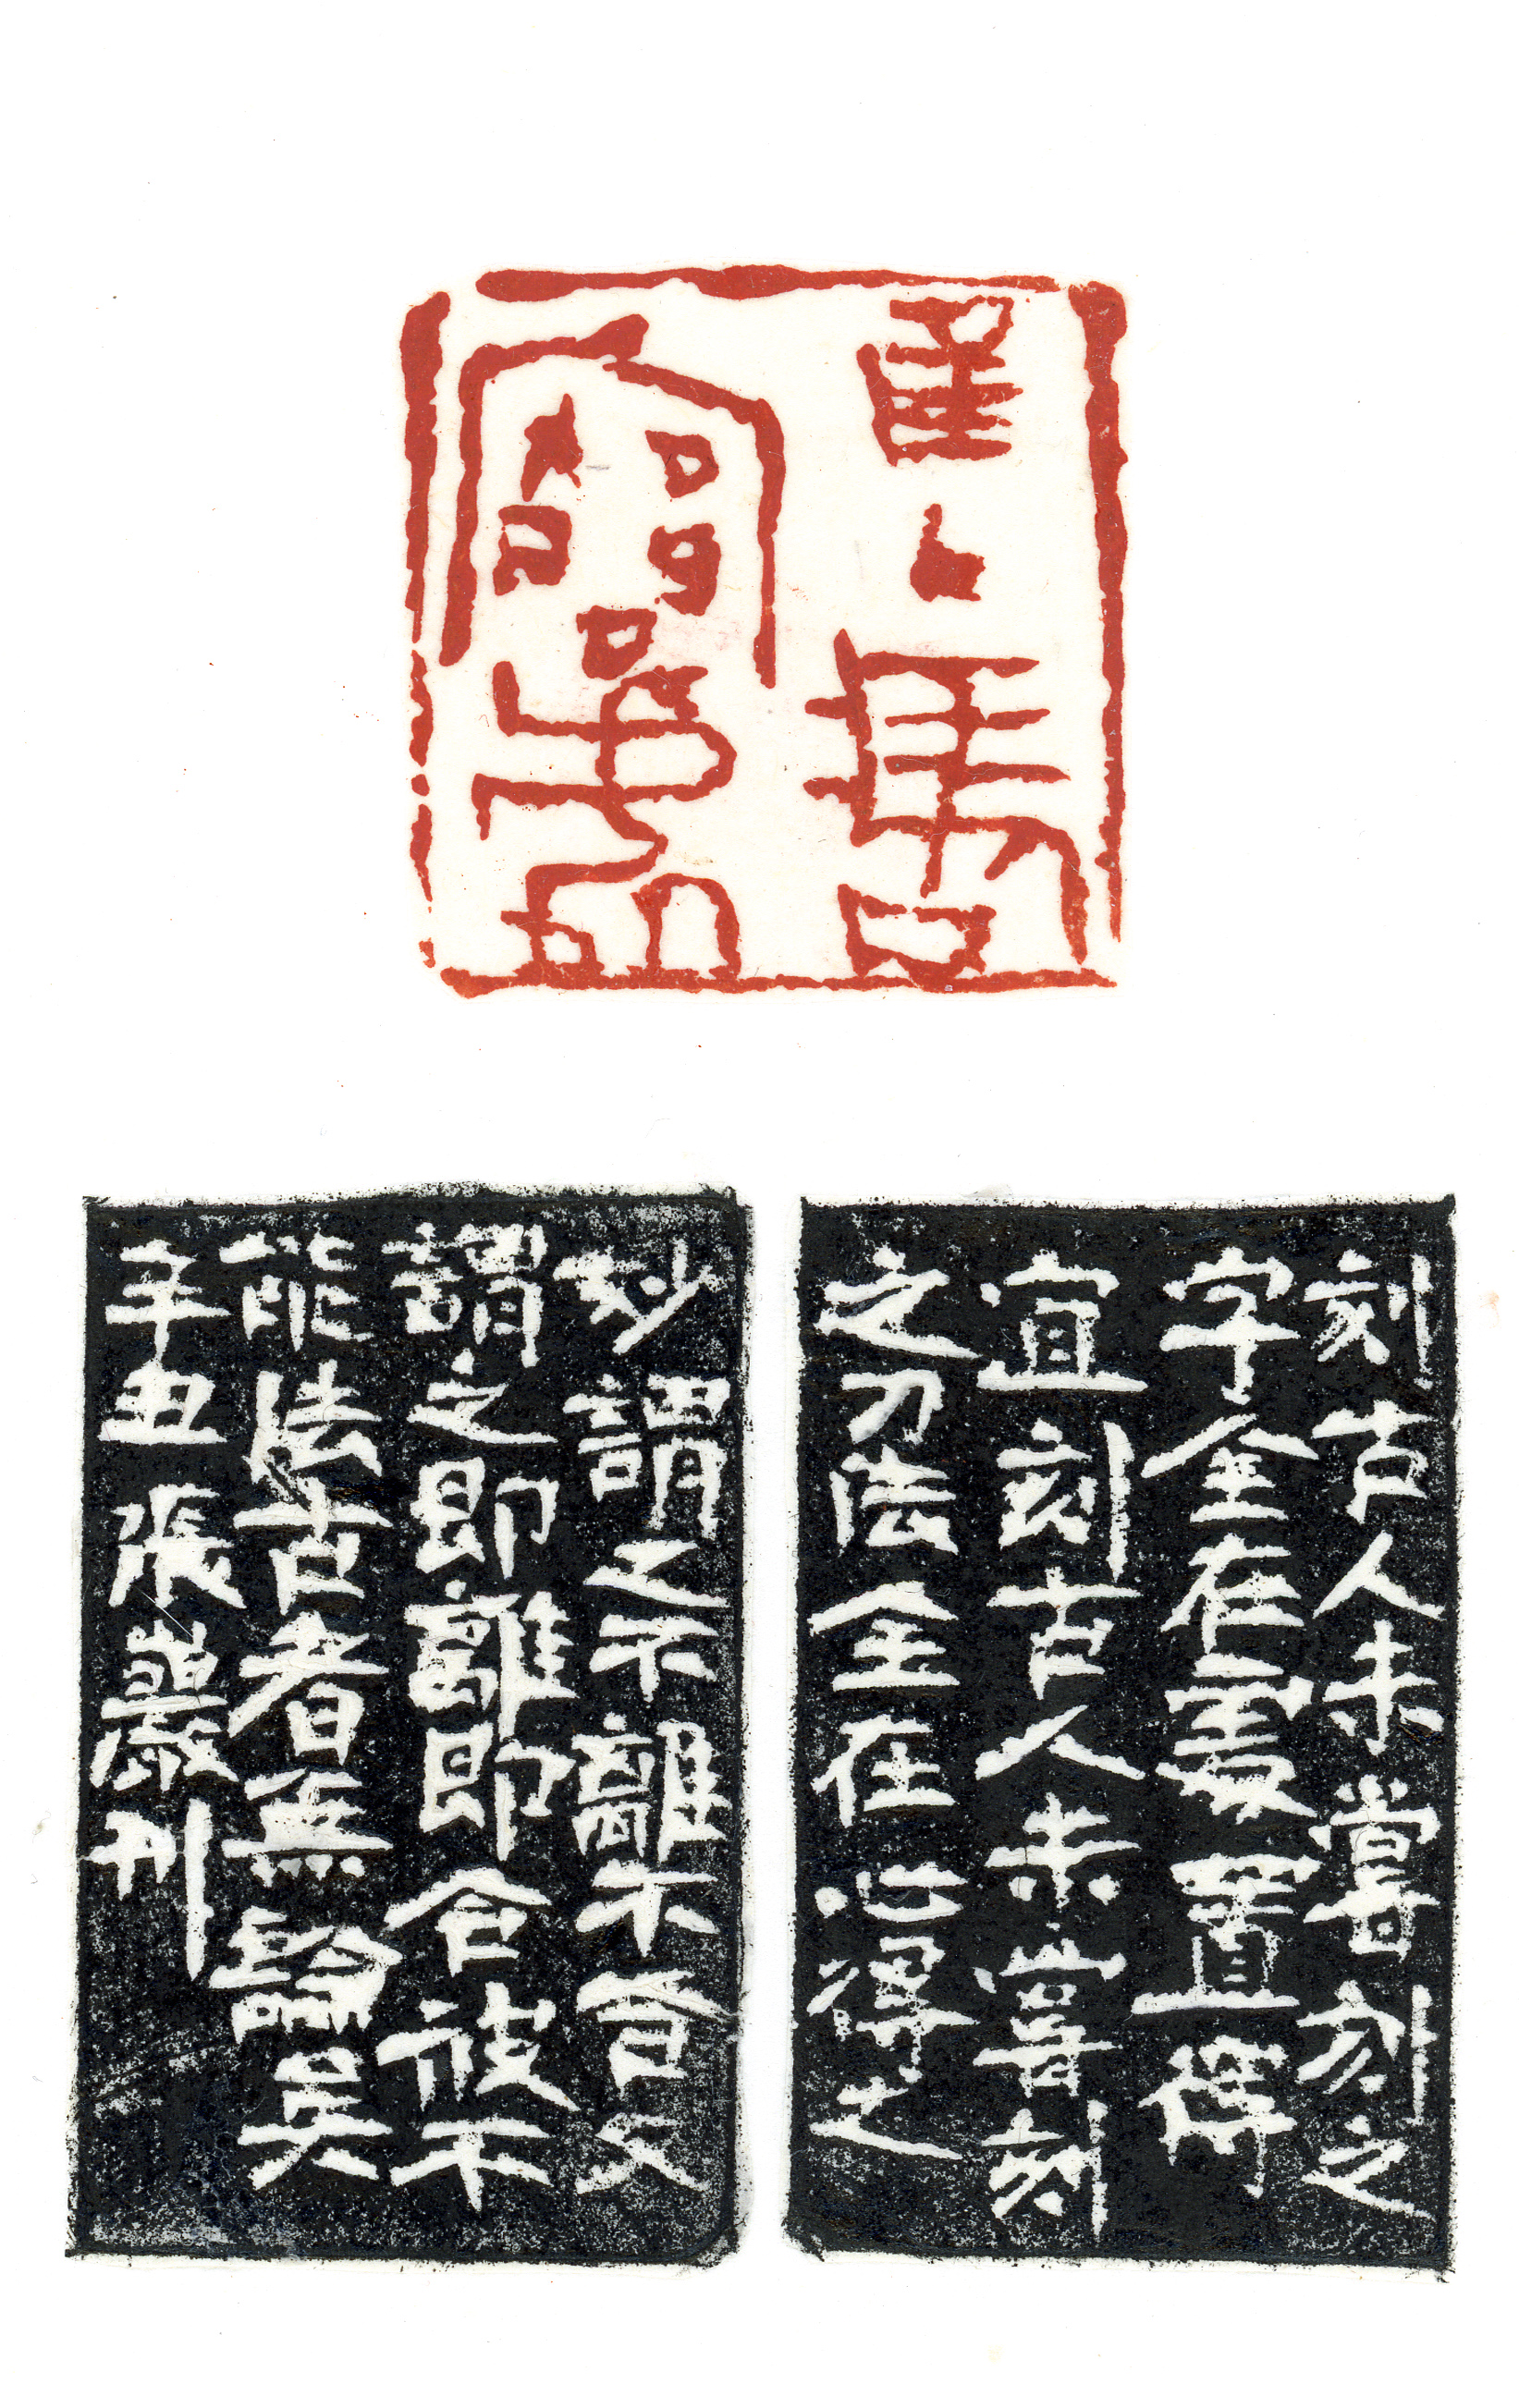 刻古人未嘗刻之
字全在處置得
宜刻古人未嘗刻
之刀法全在心得之
妙謂之不離不會又
謂之即離即合彼不
能法古者無論矣
辛丑張巖刊